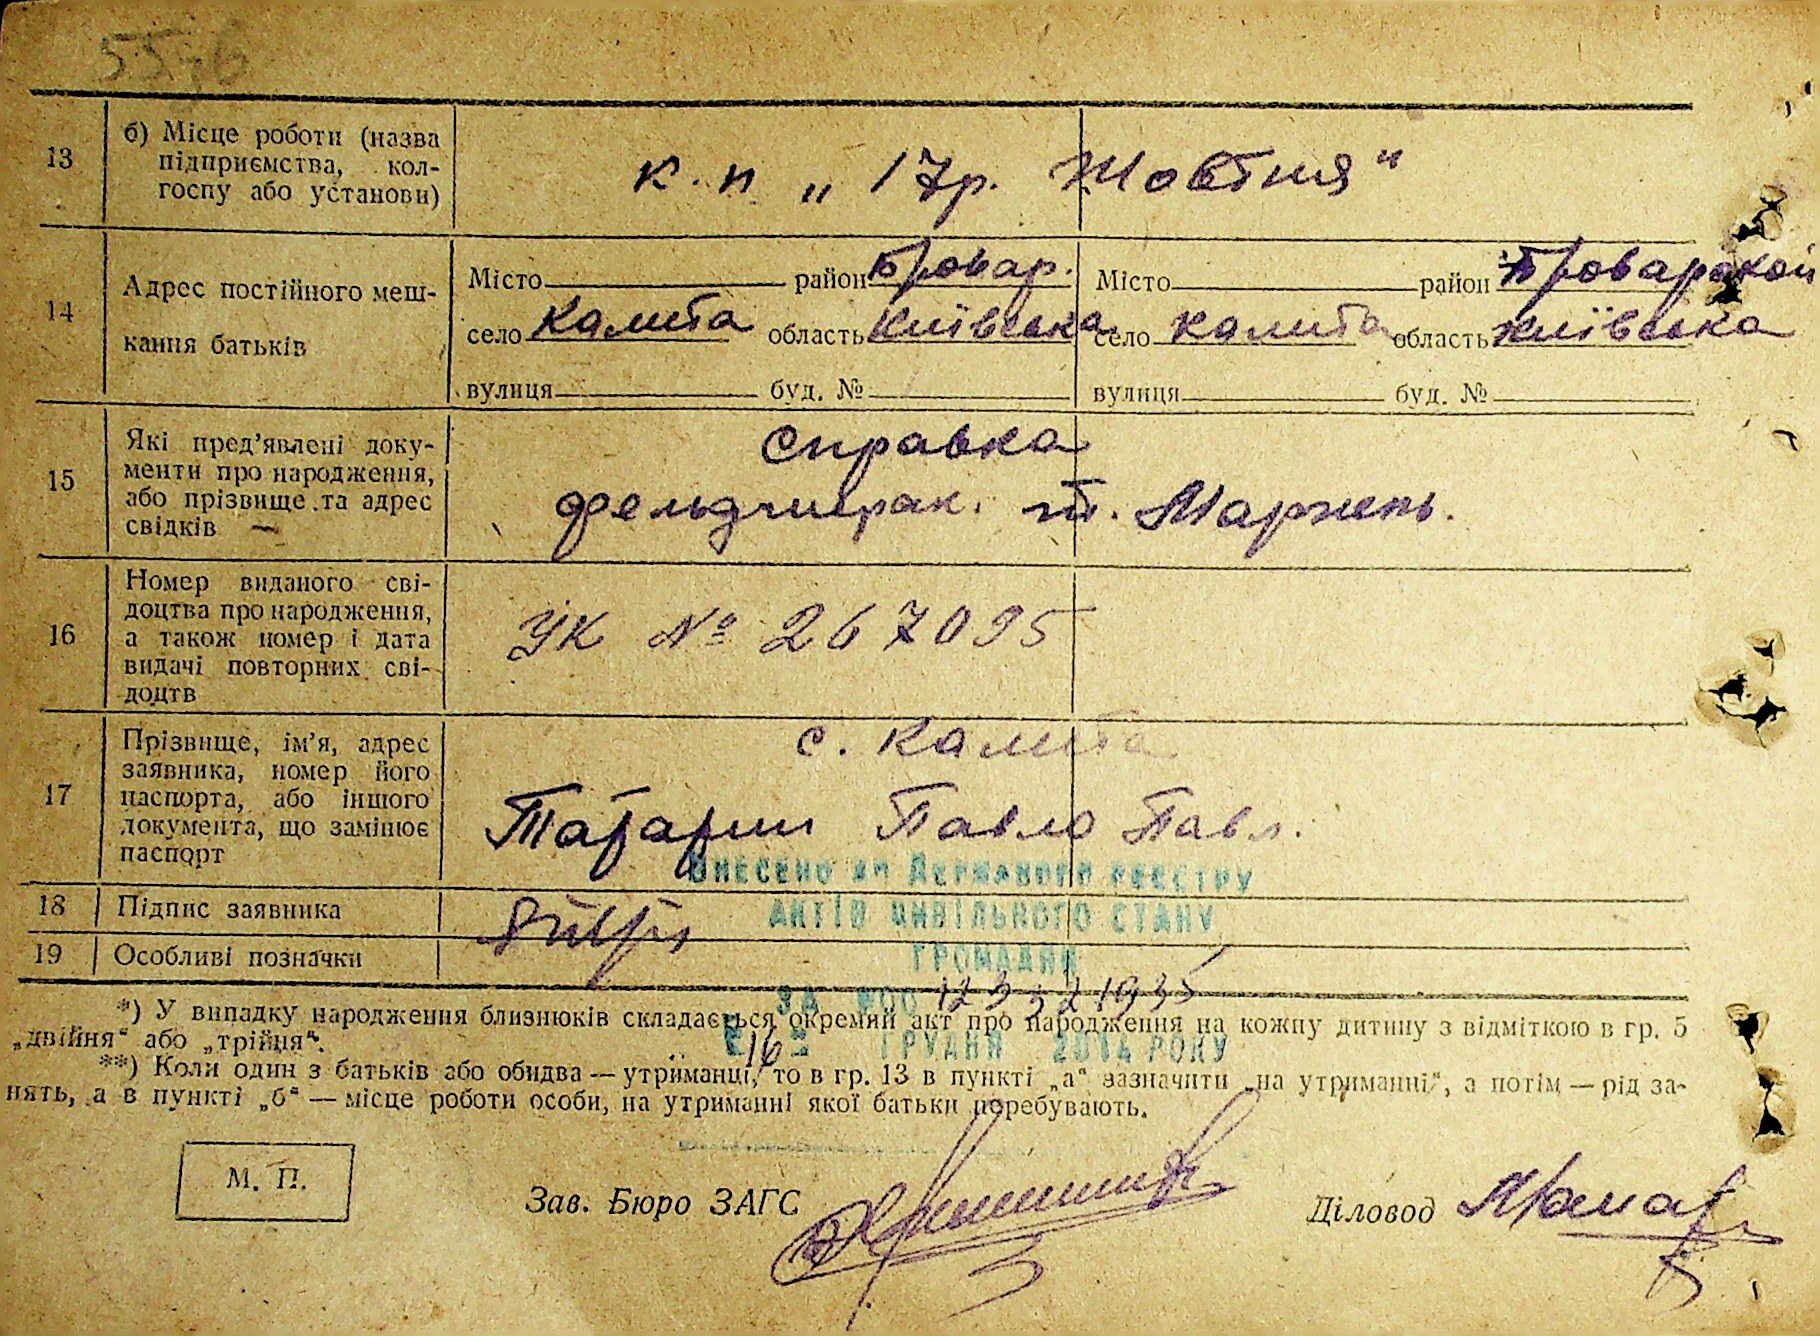 13 б) Місце роботи (назва
підприємства, кол-
госпу або установи)
к. п „ 17 р. Жовтня“
14 Адрес постійного меш-
кання батьків
Місто район Бровар. Місто район Броварской
село Калита область Київська село Калита область Київська
вулиця буд. № вулиця буд. №
15 Які пред’явлені доку-
менти про народження,
або прізвище та адрес
свідків —
справка
16 Номер виданого сві-
доцтва про народження,
а також номер і дата
видачі повторних сві-
доцтв
УК № 267095
17 Прізвище, ім’я, адрес
заявника, номер його
паспорта, або іншого
документа, що замінює
паспорт
с. Калита
Татарин Павло Павл.
ВНЕСЕНО ДО ДЕРЖАВНОГО РЕЄСТРУ
18 Підпис заявника
АКТІВ ЦИВІЛЬНОГО СТАНУ
19 Особливі позначки
ГРОМАДЯН
ЗА
*) У випадку народження близнюків складається окремий акт про народження на кожну дитину з відміткою в гр. 5
„двійня“ або „трійня“.
16 ГРУДНЯ 2014 РОКУ
**) Коли один з батьків або обидва — утриманці, то в гр. 13 в пункті „а“ зазначити „на утриманні“, а потім — рід за-
нять, а в пункті „б“ — місце роботи особи, на утриманні якої батьки перебувають.
М. П.
Зав. Бюро ЗАГС
Діловод